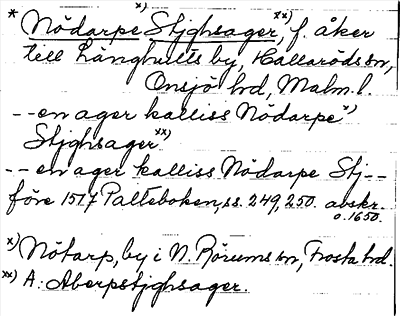 * Nödarpe x) Stjghsager, xx) f. åker
till Långhults by, Hallaröds sn,
Onsjö hd, Malm. l.
-- en ager kalliss Nödarpe x)
Stjghsager xx)
-- en ager kalliss Nödarpe Stj--
före 1517 Palteboken, ss. 249, 250. avskr.
o. 1650.
x) Nötarp, by i N. Rörums sn, Frosta hd.
xx) A: Aberpstjghsager.